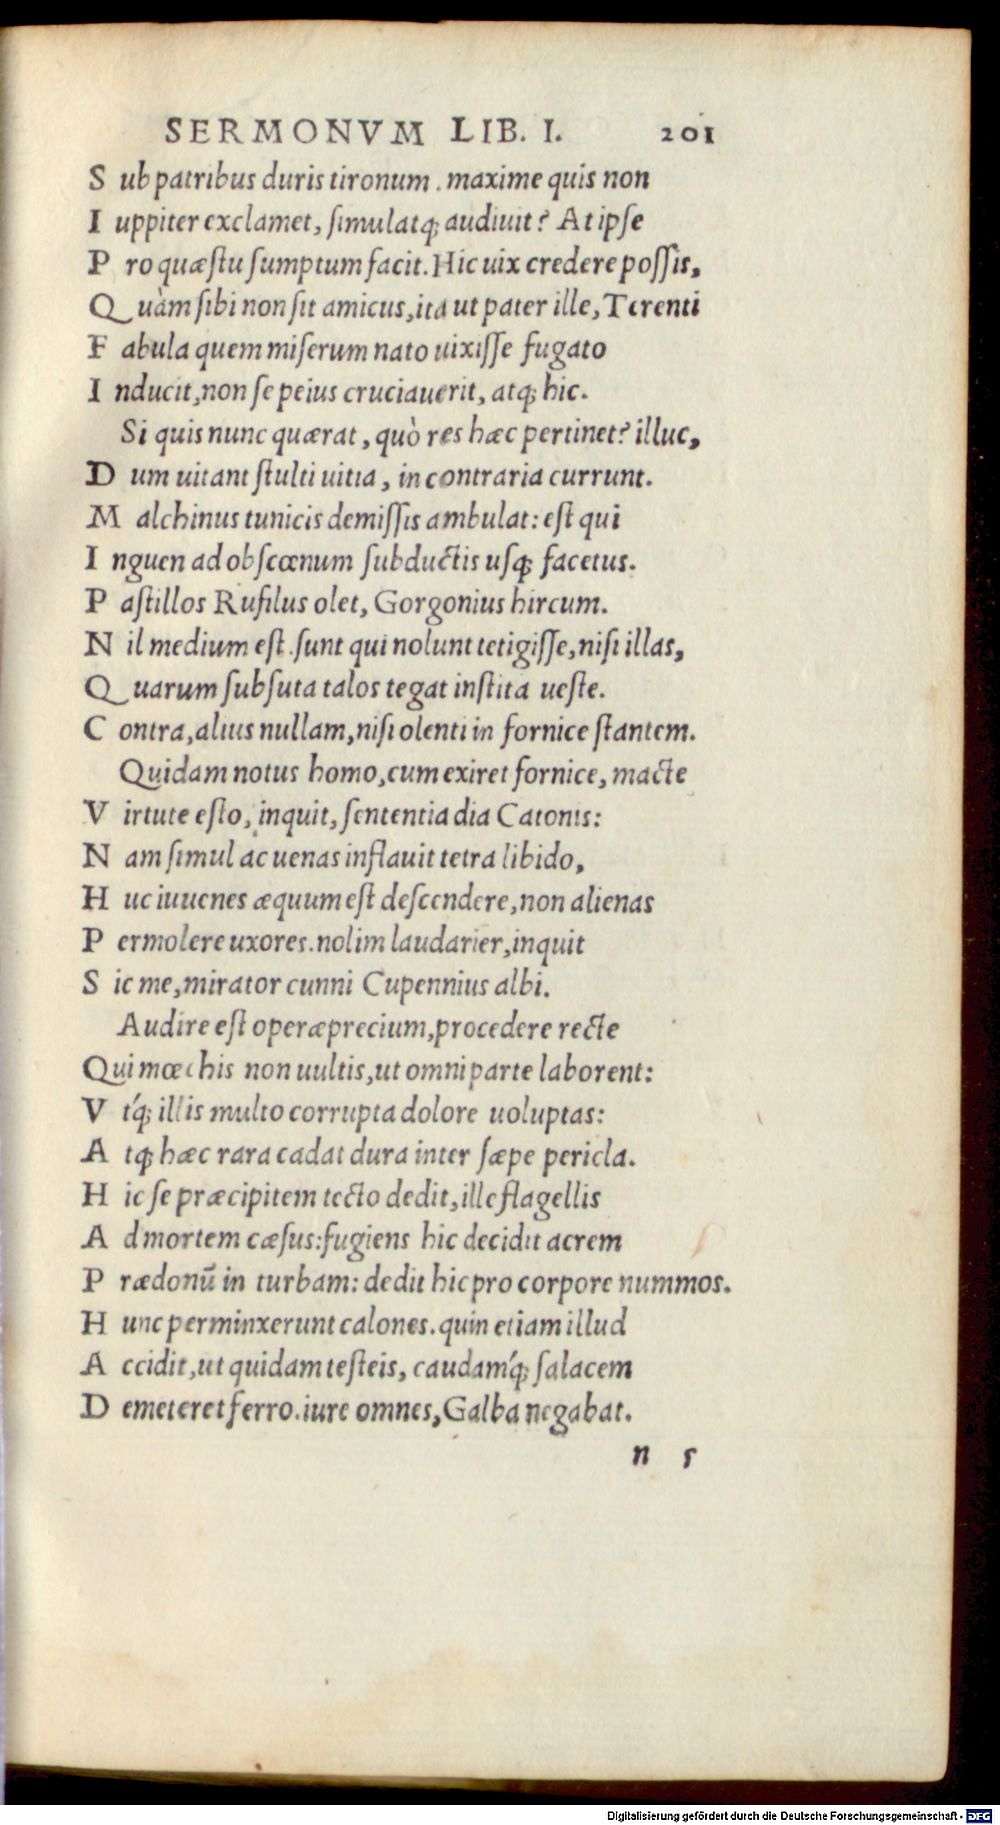 SERMONVM LIB. I. 201
S ub patribus duris tironum. maxime quis non
I uppiter exclamet, simulatq; audiuit? At ipse
P ro quæstu sumptum facit. Hic uix credere possis,
Q uàm sibi non sit amicus, ita ut pater ille, Terenti
F abula quem miserum nato uixisse fugato
I nducit, non se peius cruciauerit, atq; hic.
Si quis nunc quærat, quò res hæc pertinet? illuc,
D um uitant stulti uitia, in contraria currunt.
M alchinus tunicis demissis ambulat: est qui
I nguen ad obscœnum subductis usq; facetus.
P astillos Rufilus olet, Gorgonius hircum.
N il medium est. sunt qui nolunt tetigisse, nisi illas,
Q uarum subsuta talos tegat instita ueste.
C ontra, alius nullam, nisi olenti in fornice stantem.
Quidam notus homo, cum exiret fornice, macte
V irtute esto, inquit, sententia dia Catonis:
N am simul ac uenas inflauit tetra libido,
H uc iuuenes æquum est descendere, non alienas
P ermolere uxores. nolim laudarier, inquit
S ic me, mirator cunni Cupennius albi.
Audire est operæprecium, procedere recte
Qui mœchis non uultis, ut omni parte laborent:
V tq́; illis multo corrupta dolore uoluptas:
A tq; hæc rara cadat dura inter sæpe pericla.
H ic se præcipitem tecto dedit, ille flagellis
A d mortem cæsus: fugiens hic decidit acrem
P rædonū in turbam: dedit hic pro corpore nummos.
H unc perminxerunt calones. quin etiam illud
A ccidit, ut quidam testeis, caudamq́; salacem
D emeteret ferro. iure omnes, Galba negabat.
n 5
Digitalisierung gefördert durch die Deutsche Forschungsgemeinschaft - DFG